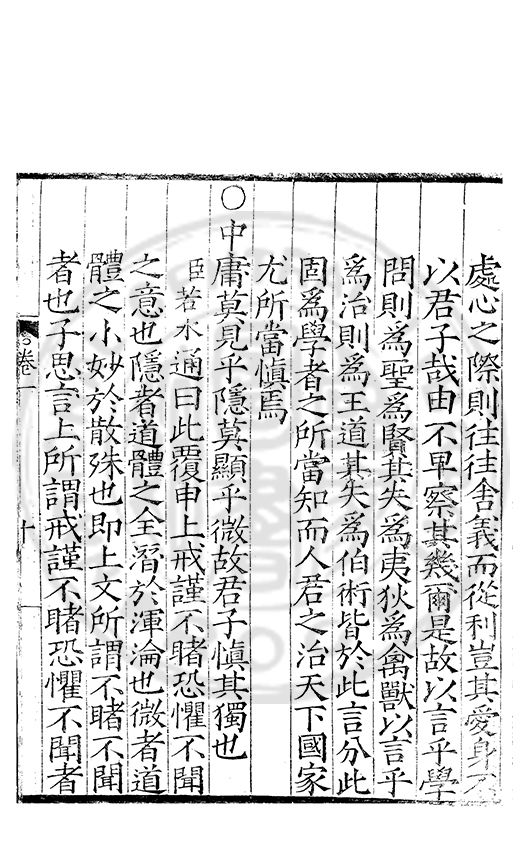 處心之際則往往舍義而從利豈其愛身不
以君子哉由不早察其幾爾是故以言乎學
問則為聖為賢其失為夷狄為禽獸以言乎
為治則為王道其失為伯術皆於此言分此
固為學者之所當知而人君之治天下國家
尤所當慎焉
○中庸莫見乎隱莫顯乎微故君子慎其獨也
臣若水通曰此覆申上戒謹不睹恐懼不聞
之意也隱者道體之全㴠於渾淪也微者道
體之小妙於散殊也即上文所謂不睹不聞
者也子思言上所謂戒謹不睹恐懼不聞者
卷一
十